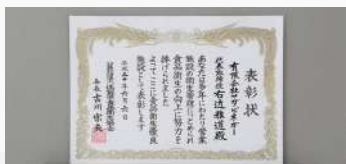 表彰状
有限会社サザビネガー
代表取締役 右近雅道殿
あなたは多年にわたり営業
施設の衛生管理につとめられ
食品衛生の向上に努力を
捧げられました
よってここに食品衛生優良
施設として表彰します
会長 吉川